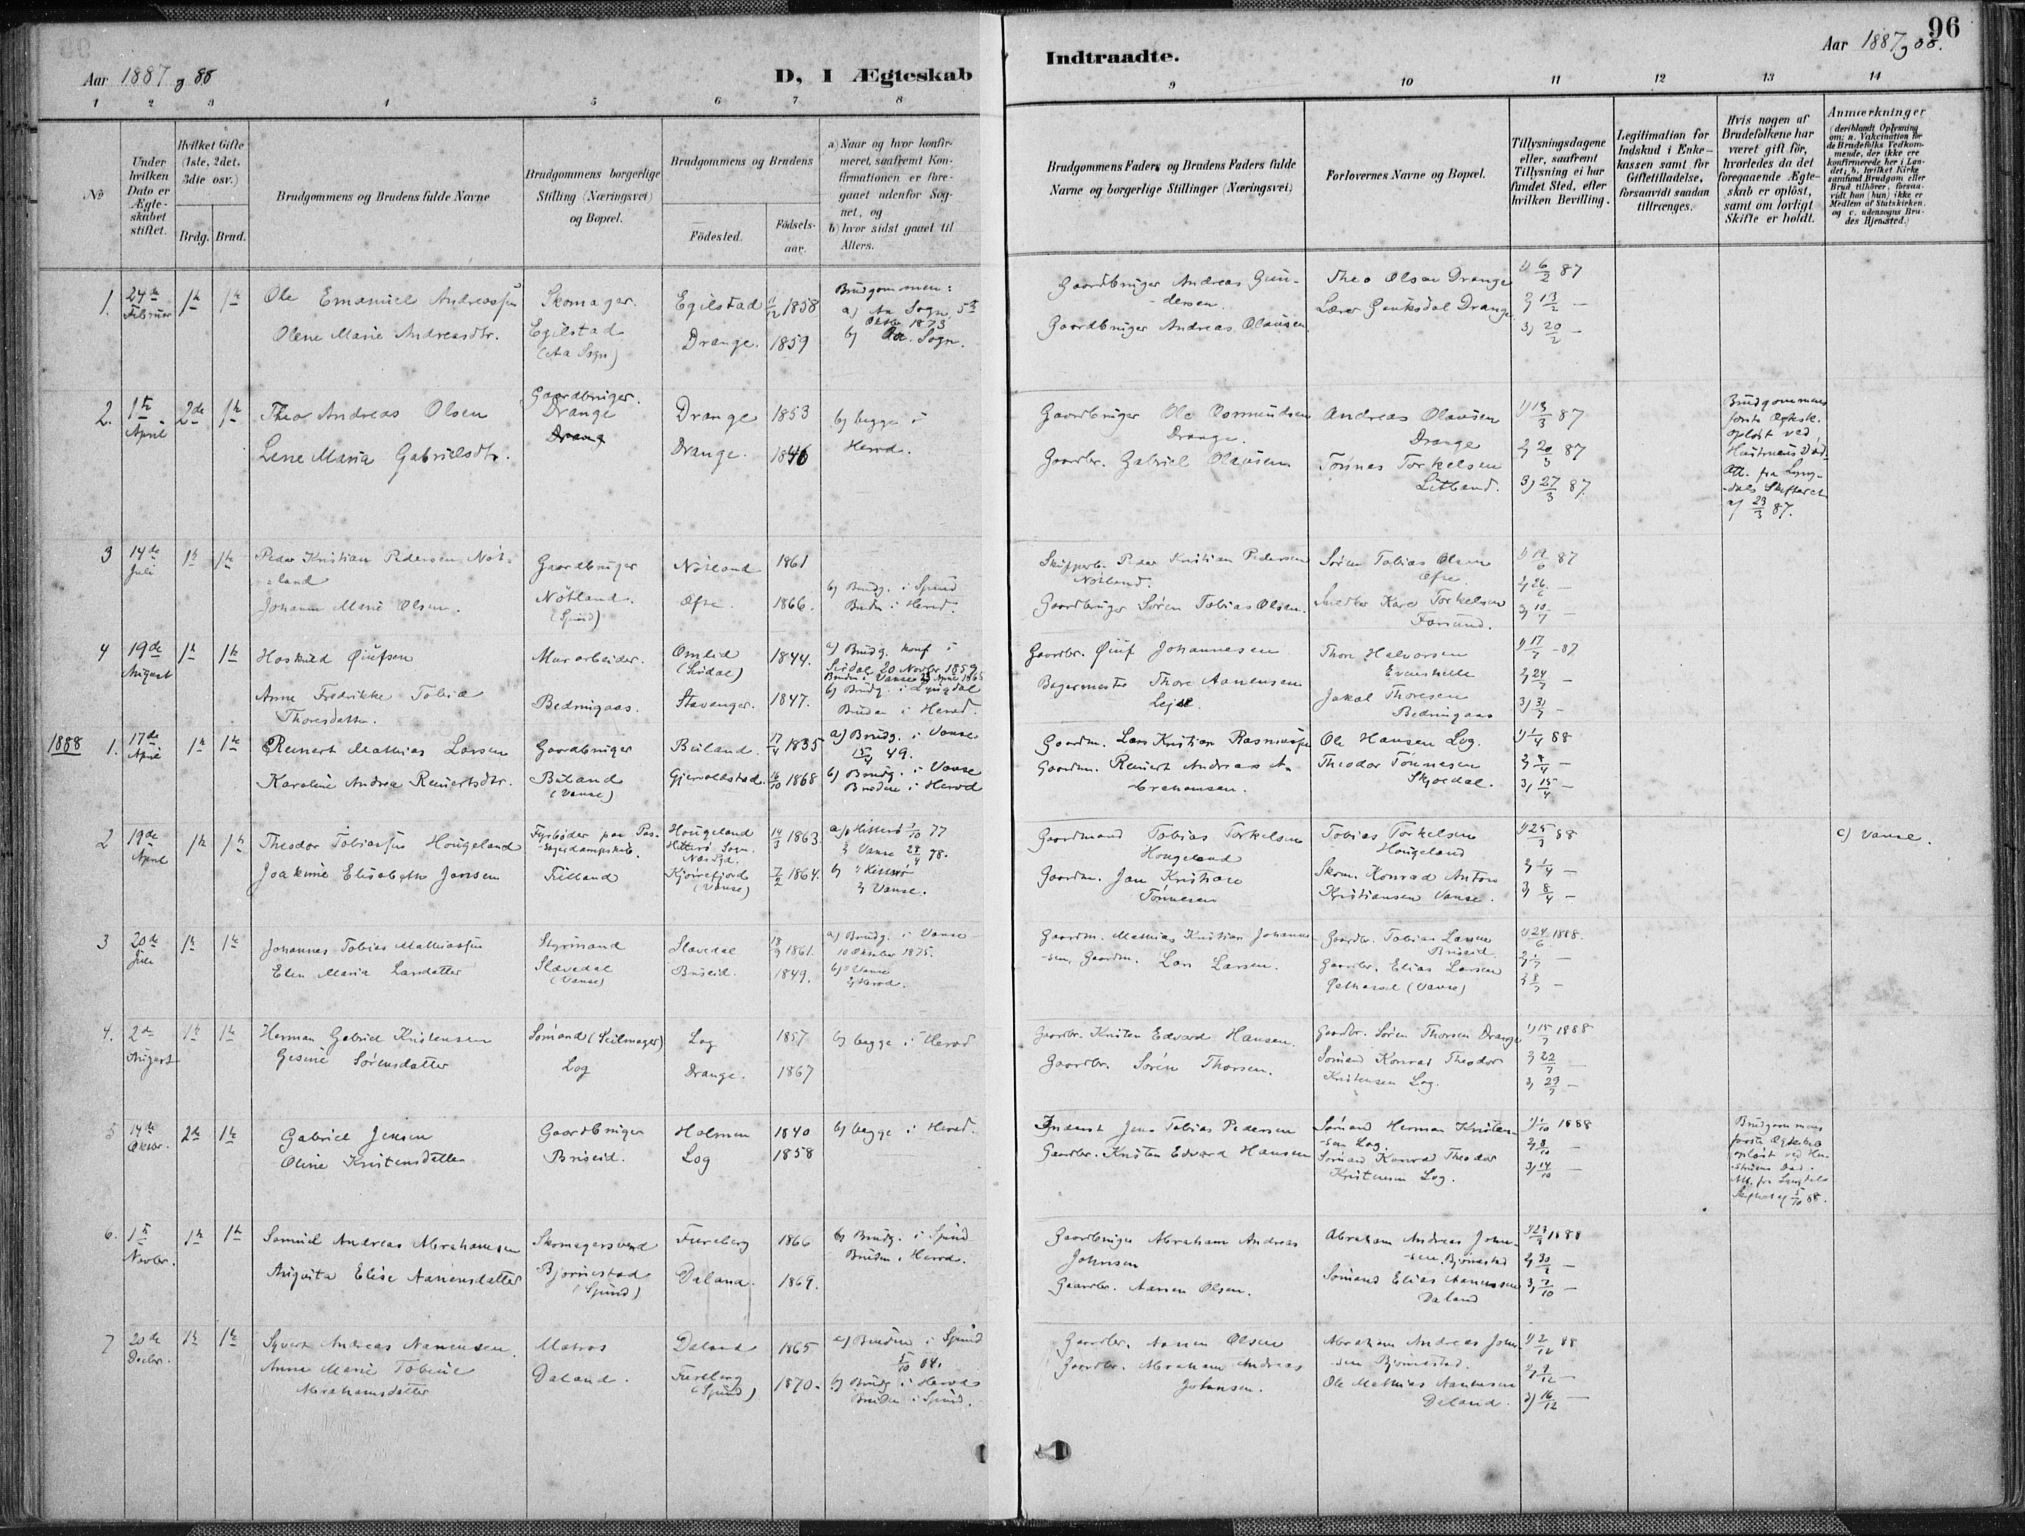 Aar 1887 og 88
D, I Ægteskab
Indtraadte.
Aar 1887 og 88.
96
1 2 3 4 5 6 7 8 9 10 11 12 13 14
No
Under hvilken Dato er Ægteskabet stiftet.
Hvilket Gifte (1ste, 2det, 3die osv.)
Brdg. Brud.
Brudgommens og Brudens fulde Navne
Brudgommens borgerlige Stilling (Næringsvei) og Bopæl.
Brudgommens og Brudens
Födested.
Födselsaar.
a) Naar og hvor konfirmeret, saafremt Konfirmationen er foregaaet udenfor Sognet, og
b) hvor sidst gaaet til Alters.
Brudgommens Faders og Brudens Faders fulde Navne og borgerlige Stillinger (Næringsvei)
Forlovernes Navne og Bopæl.
Tillysningsdagene eller, saafremt Tillysning ei har fundet Sted, efter hvilken Bevilling.
Legitimation for Indskud i Enkekassen samt for Giftetilladelse, forsaavidt saadan tiltrænges.
Hvis nogen af Brudefolkene har været gift för, hvorledes da det foregaaende Ægteskab er oplöst, samt om lovligt Skifte er holdt.
Anmærkninger
(deriblandt Oplysning om: a. Vakcination for de Brudefolks Vedkommende, der ikke ere konfirmerede her i Landet; b. hvilket Kirkesamfund Brudgom eller Brud tilhörer, forsaavidt han (hun) ikke er Medlem af Statskirken, og c. udensogns Brudes Hjemsted.)
1. 24de Februar 1ste 1ste
Ole Emanuel Andreassen
Olene Marie Andreasdtr.
Skomager
Egilstad
(Aa Sogn)
Egilstad 11/12 1858
Drange. 1859
Brudgommen:
a) Aa Sogn, 5te Oktbr 1873
b) Aa Sogn.
Gaardbruger Andreas Gundersen
Gaardbruger Andreas Olausen
Theo Olsen Drange
Lærer Drange
1) 6/2 87
2) 13/2 —
3) 20/2 —
2. 1ste April 2de 1ste
Theo Andreas Olsen
Lene Maria Gabrielsdtr.
Gaardbruger.
Drange
Drange 1853
Drange. 1846
b) begge i Herad.
Gaardbruger Ole Osmundsen
Drange.
Gaardbr. Gabriel Olausen
Andreas Olausen
Drange
Tønnes Torkelsen
Litland.
1) 13/3 87
2) 20/3 87
3) 27/3 87.
Brudgommens første Ægtesk. opløst ved Hustruens Død. Att. fra Lyngdals Skifteret af 23/3 87.
3 14de Juli 1ste 1ste
Peder Kristian Pedersen Nøtland
Johanne Marie Olsen.
Gaardbruger
Nøtland.
(Spind)
Nøtland 1861
Øfre. 1866.
b) Brudg. i Spind
Bruden i Herad.
Skipperb. Peder Kristian Pedersen
Nøtland.
Gaardbruger Søren Tobias Olsen.
Søren Tobias Olsen
Øfre.
Kare Torkelsen
Farsund.
1) 19/6 87
2) 26/6 —
3) 10/7 —
4 19de August 1ste 1ste
Haskild Øiufsen
Anne Fredrikke Tobia
Thoresdatter.
Murarbeider.
Bedningaas.
Omlid
(Sirdal) 1844.
Stavanger. 1847.
a) Brudg. konf i
Sirdal 20 Novbr 1859
b) Brudg. i Lyngdal
Bruden i Herad.
Gaardbr. Øiuf Johannesen
Bagermester Thore Aanensen
Thore Halvorsen
Evenshelle
Jakob Thoresen
Bedningaas
1) 17/7 -87
2) 24/7 —
3) 31/7 —
1888
1. 17de April 1ste 1ste
Reinert Mathias Larsen
Karoline Andrea Reinertsdtr.
Gaardbruger
Beiland
(Vanse)
Beiland. 17/4 1835
Gjervoldstad. 16/10 1868
a) Brudg. i Vanse
15/4 49.
b) Brudg. i Vanse
Bruden i Herad
Gaardm. Lars Kristian Rasmussen
Gaardm. Reinert Andreas Abrahamsen.
Ole Hansen Log.
Theodor Tønnesen
Skjoldal.
1) 1/4 88
2) 8/4 —
3) 15/4 —
2 19de April 1ste 1ste
Theodor Tobiassen Hougeland
Joakime Elisabeth Jansen
Fyrbøder paa Passagerdampskib.
Tilland
Hougeland
Hitterø Sogn. 14/3 1863.
Kjørrefjord
(Vanse) 7/2 1864.
a) Hitterø 7/10 77
2) Vanse 28/4 78.
b) Hitterø
2) Vanse.
Gaardmand Tobias Torkelsen
Hougeland
Gaardm. Jan Kristian
Tønnesen
Tobias Torkelsen
Hougeland
Skom. Konrad Anton
Kristiansen Vanse.
1) 25/3 88
2) 1/4 —
3) 8/4 —
c) Vanse.
3 20de Juli 1ste 1ste
Johannes Tobias Mathiassen
Elen Maria Larsdatter
Styrmand
Slævedal
(Vanse)
Slævedal 1861.
Briseid. 1849.
a) Brudg. i Vanse
10 Oktober 1875.
b) Vanse
2) Herad.
Gaardm. Mathias Kristian Johannessen.
Gaardm. Lars Larsen.
Gaardbr. Tobias Larsen
Briseid.
Gaardbr. Elias Larsen
(Vanse)
1) 24/6 1888.
2) 1/7 —
3) 8/7 —
4. 2de August 1ste 1ste
Herman Gabriel Kristensen
Gesine Sørensdatter
Sømand (Seilmager)
Log
Log 1857
Drange. 1867
b) begge i Herad
Gaardbr. Kristen Edvard Hansen.
Gaardbr. Søren Thorsen.
Gaardbr. Søren Thorsen Drange
Sømand Konrad Theodor
Kristensen Log.
1) 15/7 1888
2) 22/7 —
3) 29/7 —
5 14de Oktbr. 2de 1ste
Gabriel Jensen
Oline Kristensdatter
Gaardbruger
Briseid.
Holmen 1840
Log 1858
b) begge i Herad.
Inderst Jens Tobias Pedersen
Gaardbr. Kristen Edvard Hansen
Sømand Herman Kristensen Log.
Sømand Konrad Theodor
Kristensen Log.
1) 1/10 1888
2) 8/10 —
3) 14/10 —
Brudgommens første Ægteskab opløst ved Hustruens Død. Att. fra Lyngdals Skifteret af 5/10 88.
6. 1ste Novbr. 1ste 1ste
Samuel Andreas Abrahamsen
Augusta Elise Aanensdatter
Skomagersvend
Bjørnestad
(Spind)
Fureberg 1866
Daland. 1869.
b) Brudg. i Spind
Bruden i Herad.
Gaardbruger Abraham Andreas
Johnsen
Gaardbr. Aanen Olsen.
Abraham Andreas Johnsen, Bjørnestad
Sømand Elias Aanensen
Daland
1) 23/9 1888
2) 30/9 —
3) 7/10 —
7 20de Decbr. 1ste 1ste
Syvert Andreas Aanensen.
Anne Marie Tobine
Abrahamsdatter
Matros
Daland.
Daland 1865
Fureberg
(Spind) 1870.
a) Bruden i Spind
5/10 84.
b) Brudg. i Herad
Bruden i Spind.
Gaardbr. Aanen Olsen
Gaardbr. Abraham Andreas
Johnsen.
Abraham Andreas Johnsen Bjørnestad.
Ole Mathias Aanensen
Daland.
1) 2/12 88
2) 9/12 —
3) 16/12 —